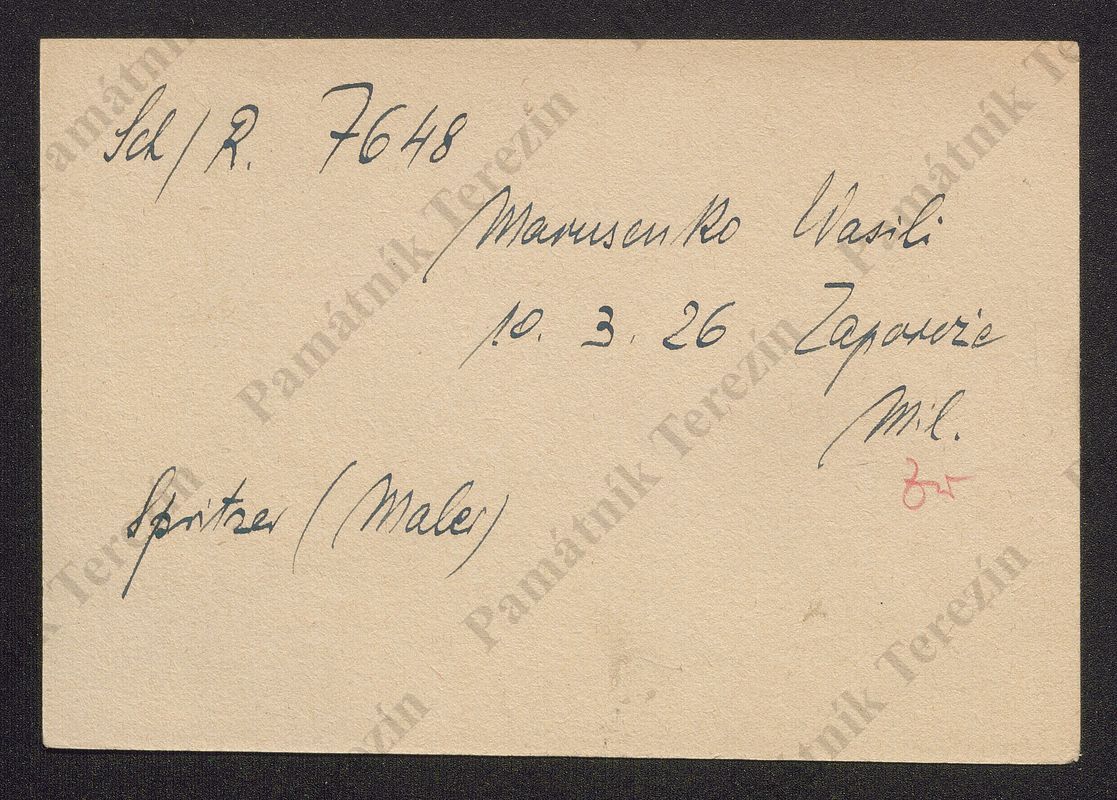 Sch/R. 7648
Marusenko Wasili
10. 3. 26 Zaporože
Mil.
Spritzer (Maler)
Památník Terezín
Památník Terezín
Památník Terezín
Památník Terezín
Památník Terezín